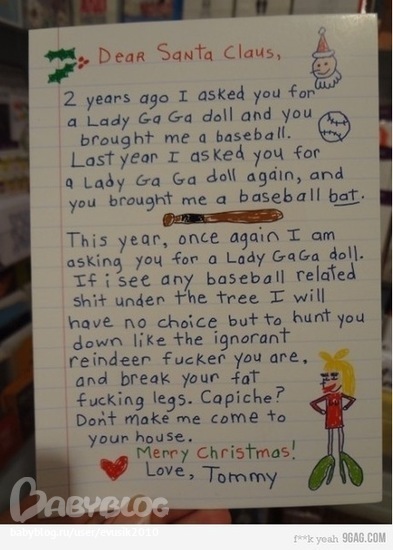 Dear Santa Claus,
2 years ago I asked you for
a Lady Ga Ga doll and you
brought me a baseball.
Last year I asked you for
a Lady Ga Ga doll again, and
you brought me a baseball bat.
This year, once again I am
asking you for a Lady GaGa doll.
If i see any baseball related
shit under the tree I will
have no choice but to hunt you
down like the ignorant
reindeer fucker you are,
and break your fat
fucking legs. Capiche?
Don't make me come to
your house.
Merry Christmas!
Love, Tommy
BABYBLOG
f**k yeah 9GAG.COM